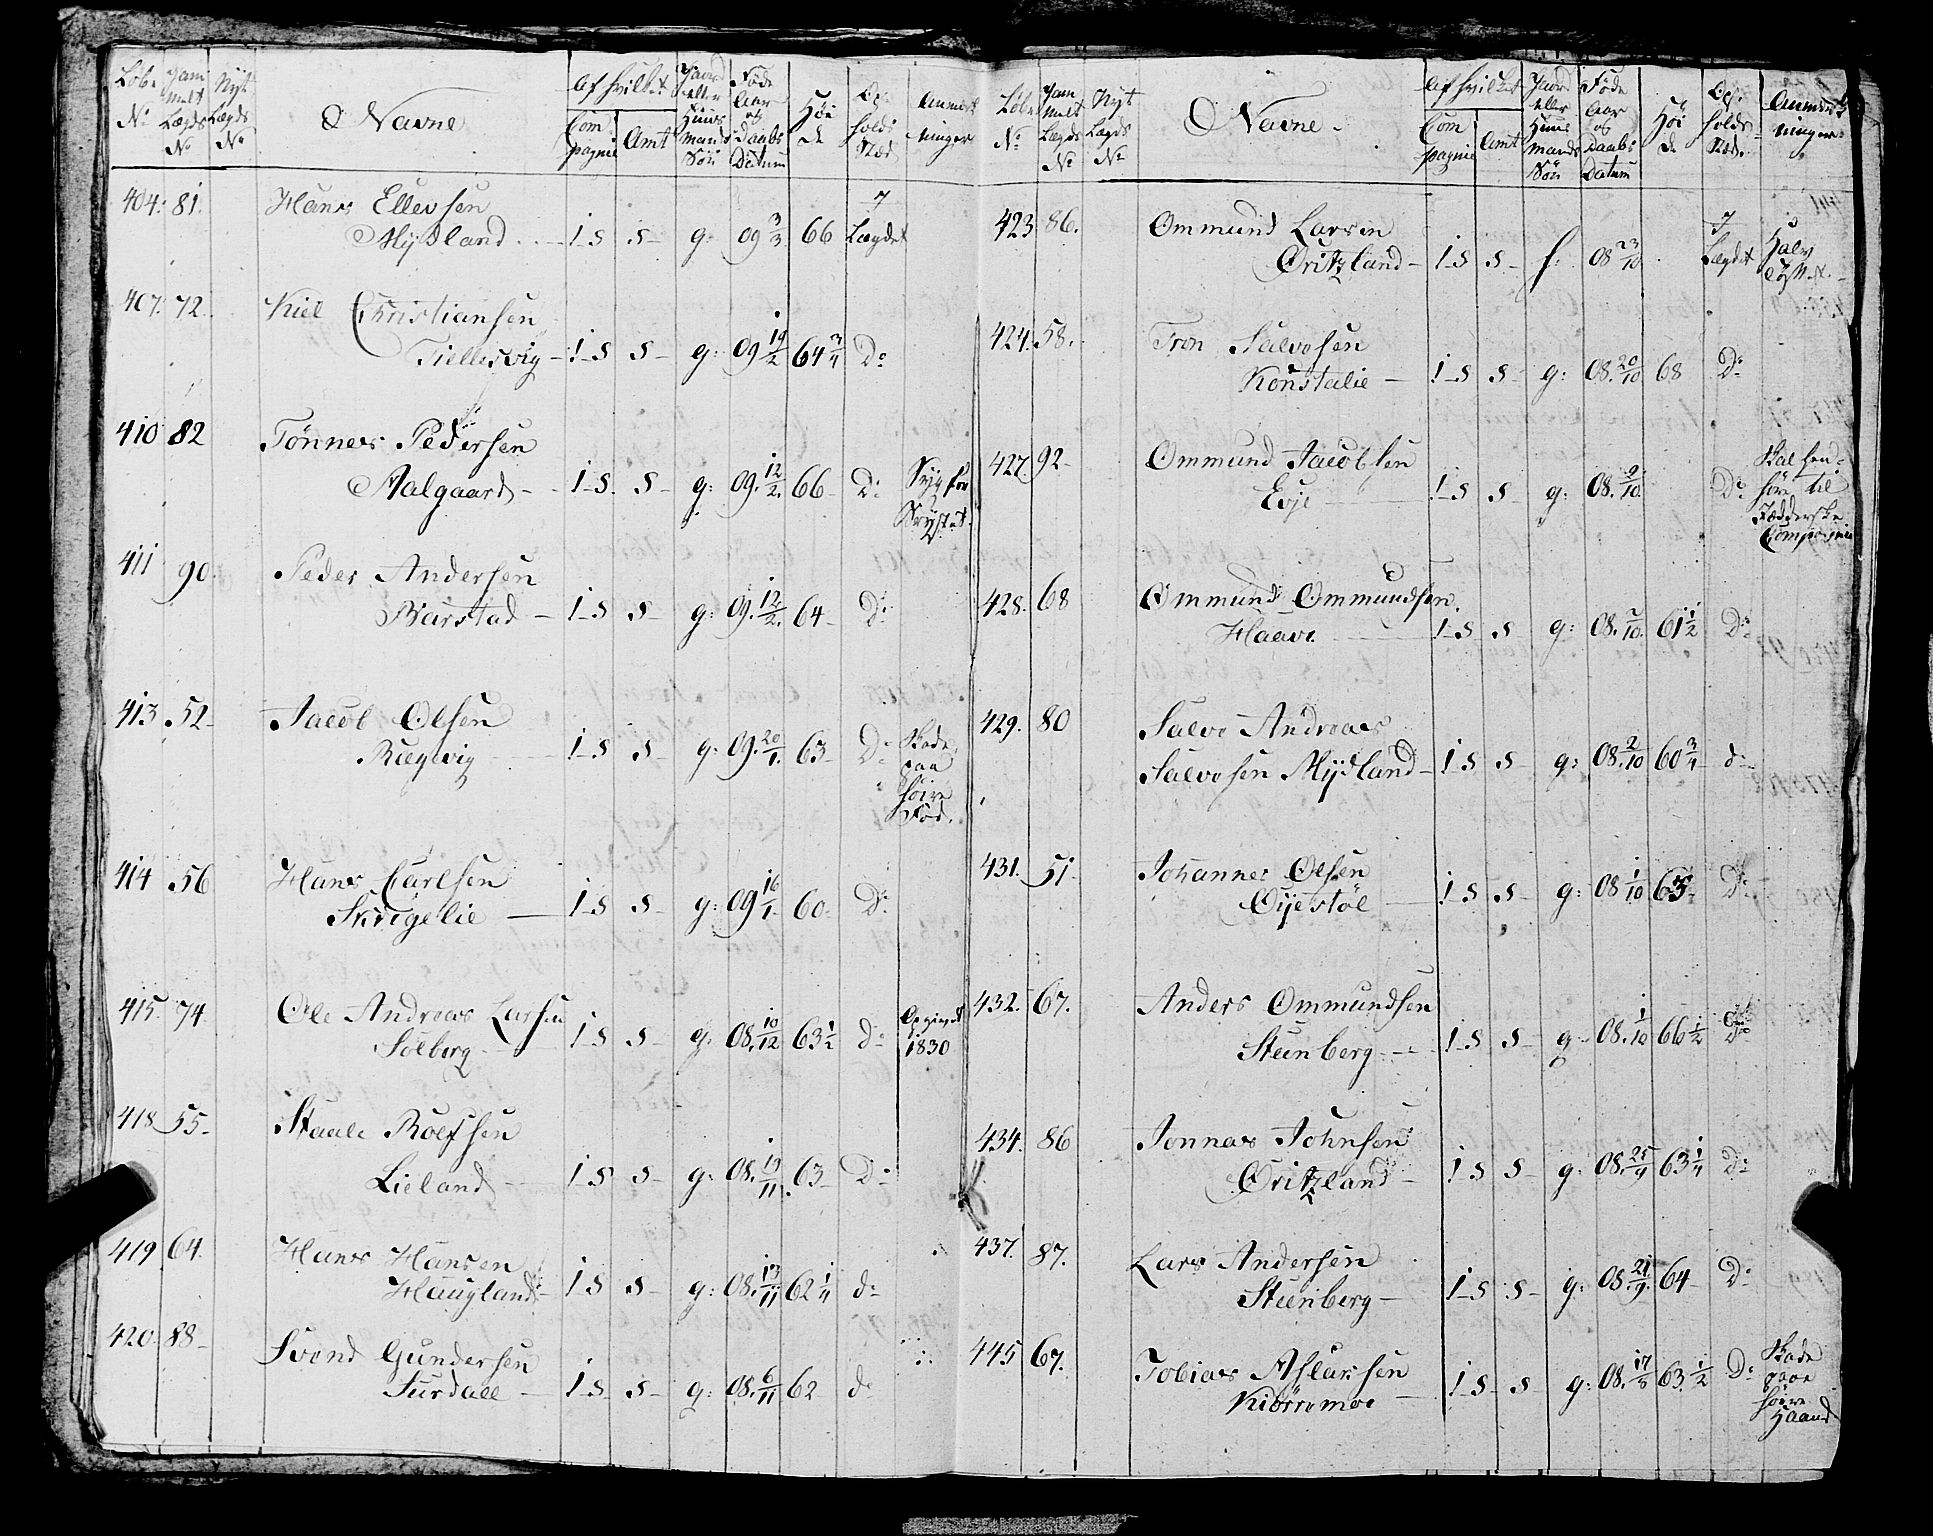 Løbe No Gammelt Lægds No Nyt Lægds No Navne Af hvilket Compagnie Amt Gaard eller Huusmands Søn Føde Aar og Daabs Datum Høide Opholds Sted Anmærkninger
404. 81. Hans Ellevsen
Mydland 1-S S g: 09 3/3 66 I Lægdet
407. 72. Kiel Christiansen
Tiellesvig 1-S S g: 09 14/2 64 3/4 Do
410 82 Tønnes Pedersen
Aalgaard 1-S. S g: 09. 12/2. 66 Do Syg for
Brystet.
411 90. Peder Andersen
Barstad 1-S S g: 09. 12/2. 64 Do
413. 52 Jacob Olsen
Rægevig 1-S S g: 09. 20/1. 63 Do Skade
paa
høire
Fod.
414 56 Hans Carlsen
Skrigelie 1-S S g: 09 16/1. 60. Do
415. 74 Ole Andreas Larsen
Solberg 1-S S g. 08. 10/12 63 1/2 do
1830
418 55 Staale Roelfsen
Lieland 1-S S g: 08. 19/11. 63 Do
419. 64. Hans Hansen
Haugland 1-S S g: 08. 13/11 62 1/4 do
420. 88 Svend Gundersen
Surdall 1-S S g: 08. 6/11 62 do
Løbe No Gammelt Lægds No Nyt Lægds No Navne. Af hvilket Compagnie Amt Gaard eller Huusmands Søn Føde Aar og Daabs Datum Høide Opholds Sted Anmærkninger
423 86. Ommund Larsen
Øritzland 1-S S f: 08 23/10 I Lægdet Halv
424. 58. Tron Salvesen
Konstalie 1-S S g: 08. 20/10 68 Do
427. 92 Ommund Jacobsen
Evje 1-S S g: 08. 9/10. Do Skal hen
høre til
Jædderske
Compagnie
428. 68 Ommund Ommundsen
Haave 1-S S g: 08. 7/10. 61 1/2 Do
429. 80 Salve Andreas
Salvesen Mydland 1-S S g: 08. 2/10 60 3/4 do
431. 51. Johannes Olsen
Øijestøl 1-S S g: 08 1/10 65 Do
432. 67. Anders Ommundsen
Steenberg 1-S S g 08. 1/10 66 1/2 Do
434. 86 Jonnas Johnsen
Øritzland 1-S S g: 08. 25/9 63 1/4 Do
437. 87. Lars Andersen
Steenberg 1-S S g: 08. 21/9. 64 Do
445 67. Tobias Aslacsen
Kiørremoe 1-S S g: 08. 17/8 63. 1/2 Do Skade
paa
høire
Haand